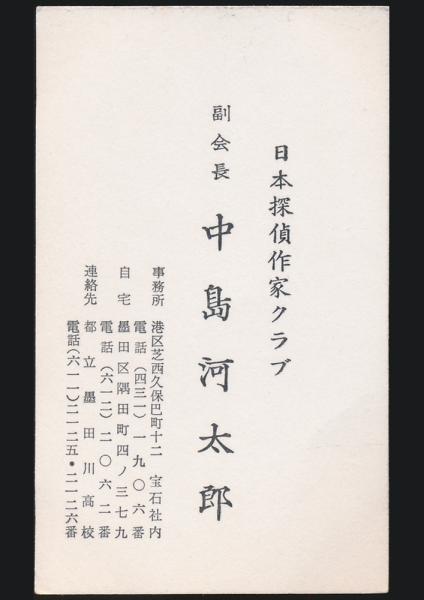 日本探偵作家クラブ
副会長 中島河太郎
事務所 港区芝西久保巴町十二 宝石社内
電話(四三一)一九〇六番
自宅 墨田区隅田町四ノ三七九
電話(六一二)二〇六二番
連絡先 都立墨田川高校
電話(六一一)二一二五・二一二六番